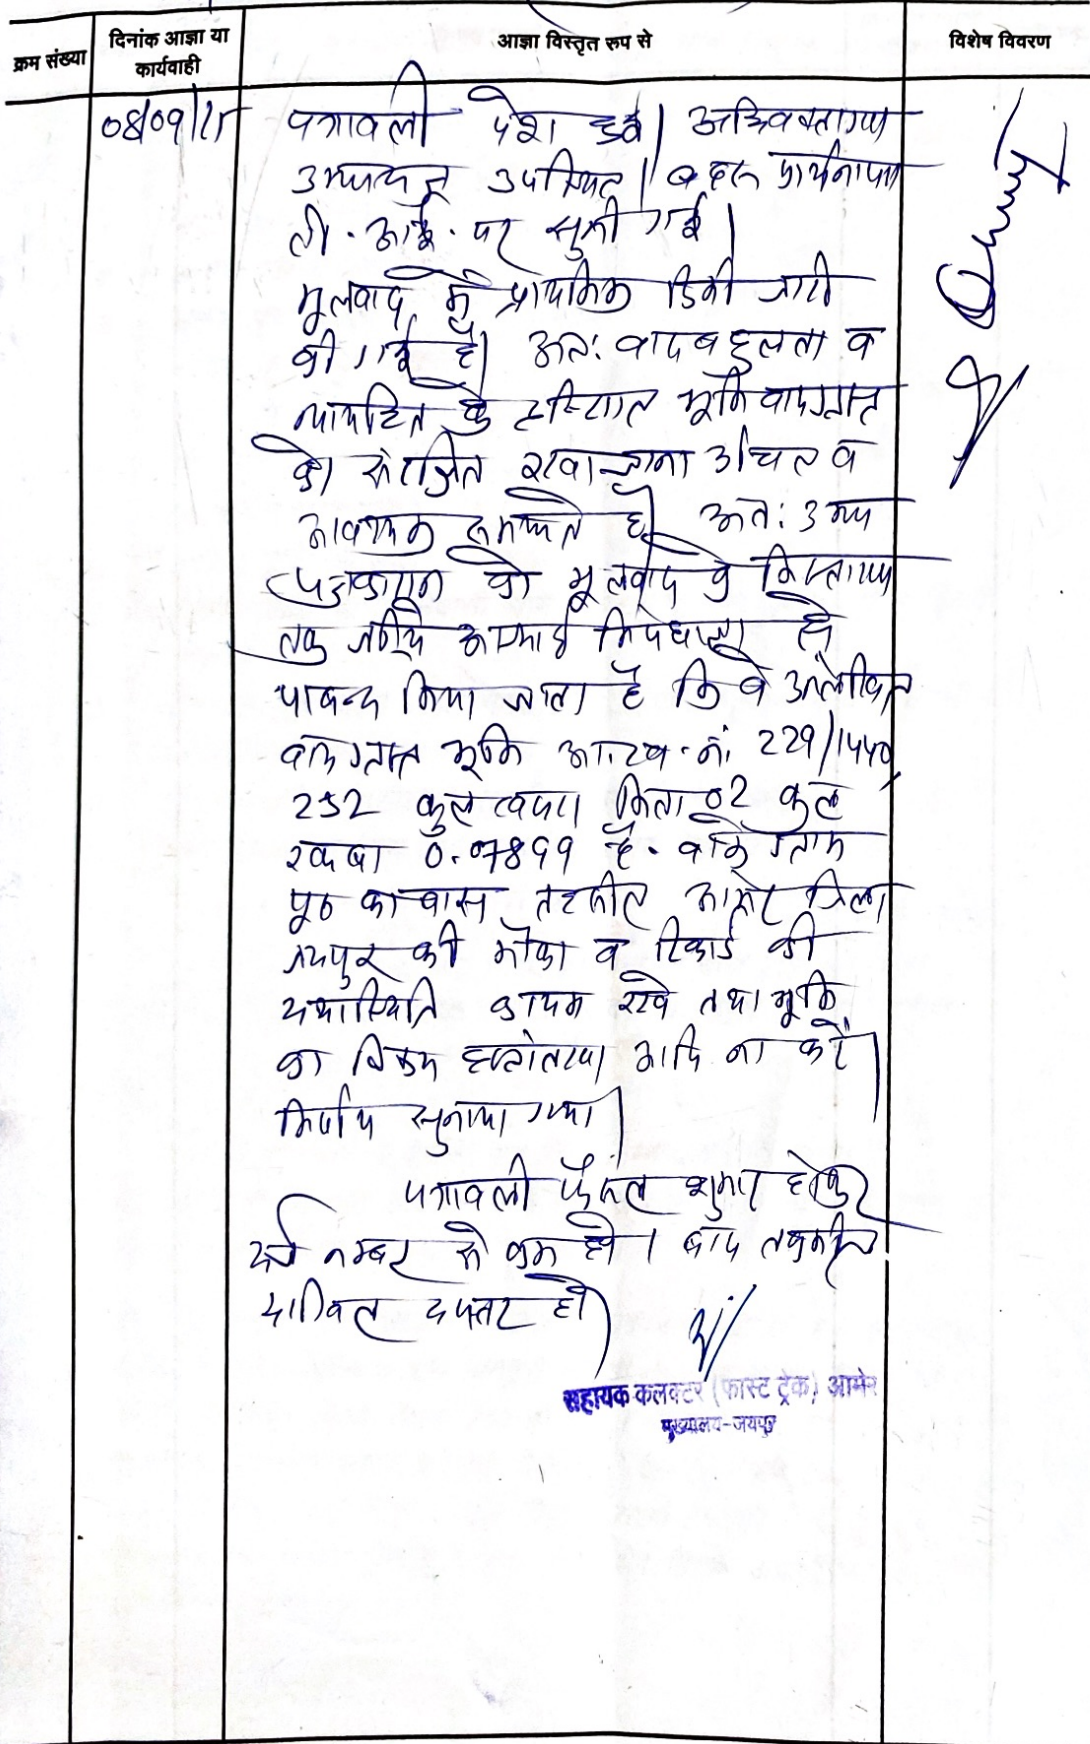 क्रम संख्या
दिनांक आज्ञा या
कार्यवाही
आज्ञा विस्तृत रुप से
विशेष विवरण
पत्रावली पेश हुई। अधिवक्तागण
उभयपक्ष उपस्थित। बहस प्रार्थनापत्र
टी. आई. पर सुनी गई।
मूलवाद में प्राथमिक डिक्री जारी
की गई है। अत: वादबहुलता व
न्यायहित के दृष्टिगत भूमि वादग्रस्त
को संरक्षित रखा जाना उचित व
आवश्यक समझते है। अत: उभय
पक्षकारान को मूलवाद के निस्तारण
तक जर्रिये अस्थाई निषेधाज्ञा से
पाबन्द किया जाता है कि वे
वादग्रस्त भूमि आ.ख. नं. 229/1440,
252 कुल खसरा किता 02 कुल
रकबा 0.07899 है. वाके ग्राम
का बास तहसील आमेर जिला
जयपुर की मौका व रिकार्ड की
यथास्थिति कायम रखे तथा भूमि
का विक्रय हस्तांतरण आदि ना करें।
निर्णय सुनाया गया।
पत्रावली फैसल शुमार होकर
दर्ज नम्बर से कम हो। बाद तकमील
दाखिल दफ्तर हो।
सहायक कलक्टर (फास्ट ट्रेक) आमेर
मुख्यालय-जयपुर